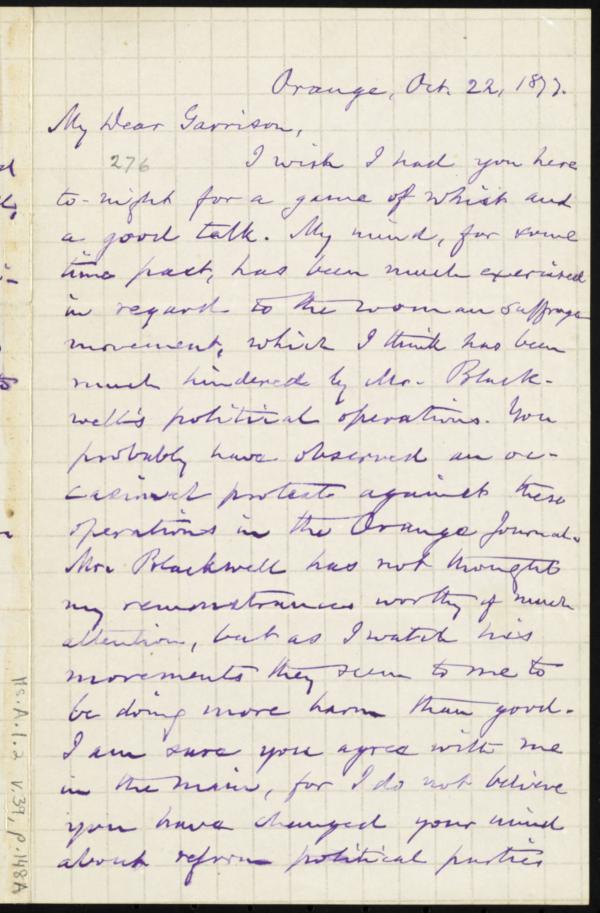 Orange, Oct. 22, 1877.
My Dear Garrison,
276
I wish I had you here
to-night for a game of whist and
a good talk. My mind, for some
time past, has been much exercised
in regard to the woman suffrage
movement, which I think has been
much hindered by Mr. Black-
well's political operations. You
probably have observed an oc-
casional protest against these
operations in the Orange Journal.
Mr. Blackwell has not thought
my remonstrances worthy of much
attention, but as I watch his
movements they seem to me to
be doing more harm than good.
I am sure you agree with me
in the main, for I do not believe
you have changed your mind
about reform political parties
Ms. A. 1. 2 v. 39, p. 148A